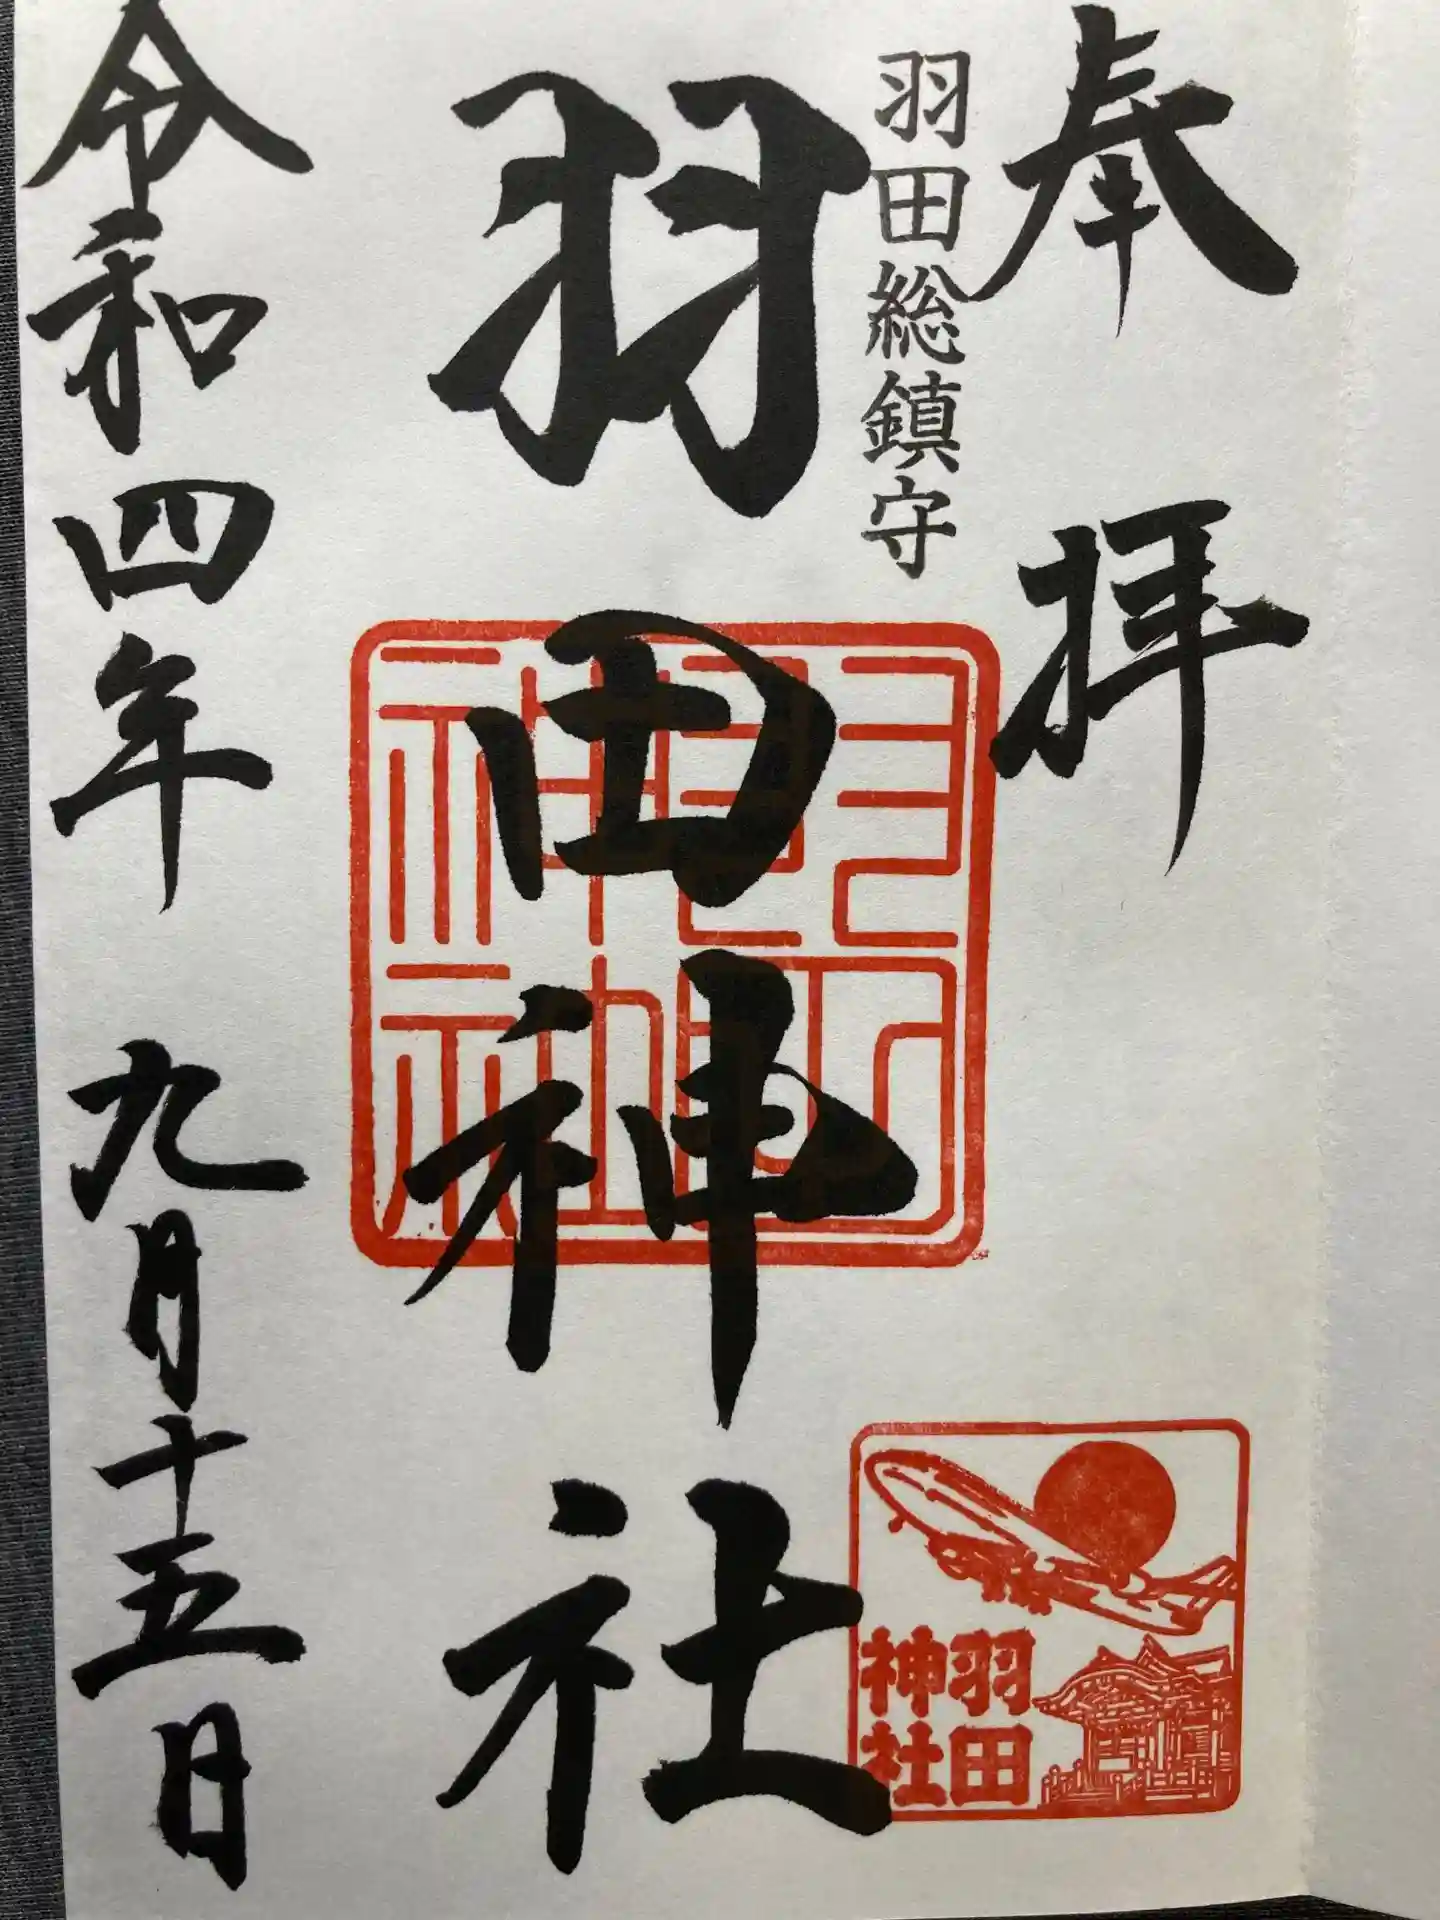 奉拝
羽田総鎮守
羽田神社
令和四年 九月十五日
羽田
神社